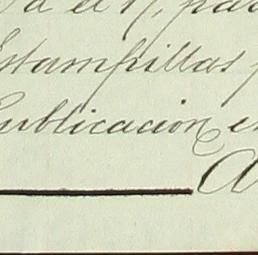 a el 17, para
Estampillas p
Publicacion en
A